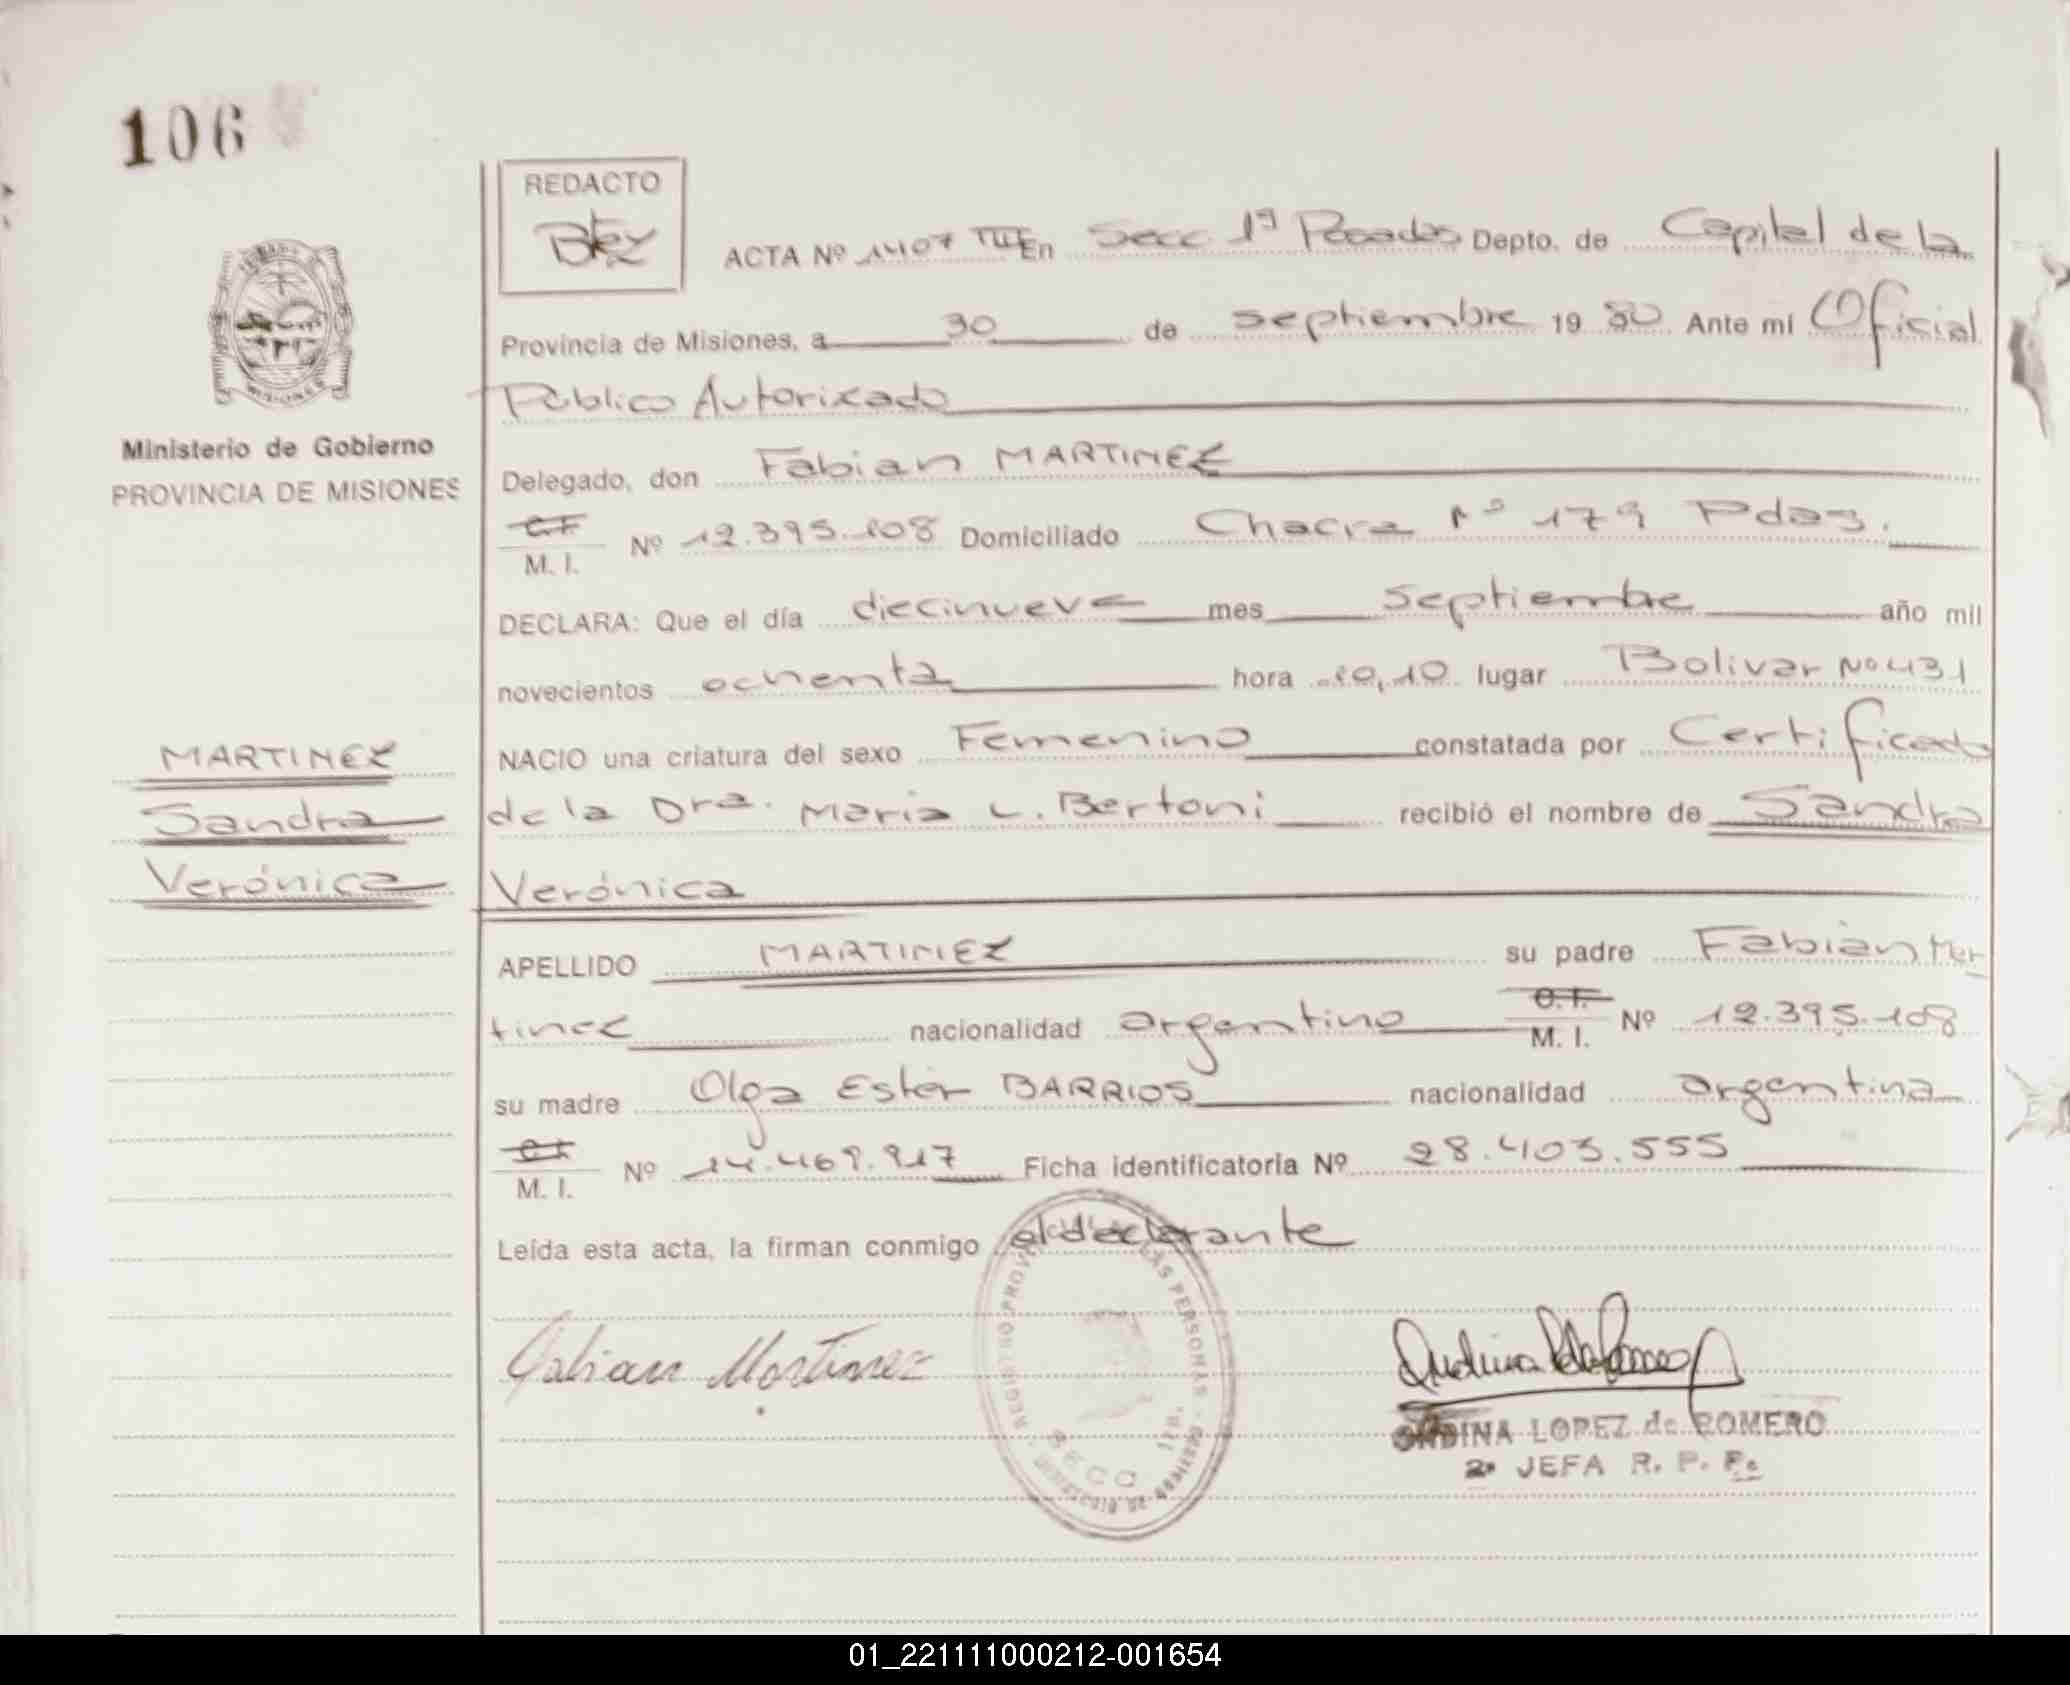 106
REDACTO
ACTA Nº 1407 TIII En Secc 1ª Posadas Depto. de Capital de la
Provincia de Misiones, a 30 de septiembre 19 80 Ante mí Oficial
Público Autorizado
Ministerio de Gobierno
PROVINCIA DE MISIONES
Delegado, don Fabian MARTINEZ
C.I. M. I. Nº 12.395.108 Domiciliado Chacra Nº 179 Pdas.
DECLARA: Que el día diecinueve mes septiembre año mil
novecientos ochenta hora 10,10 lugar Bolivar Nº 431
NACIO una criatura del sexo Femenino constatada por Certificado
MARTINEZ
Sandra
Verónica
de la Dra. Maria L. Bertoni recibió el nombre de Sandra
Verónica
APELLIDO MARTINEZ su padre Fabian Mar
tinez nacionalidad argentino C.I. M. I. Nº 12.395.108
su madre Olga Ester BARRIOS nacionalidad argentina
C.I. M. I. Nº 14.469.917 Ficha identificatoria Nº 28.403.555
Leída esta acta, la firman conmigo el declarante
Fabian Martinez
LAS PERSONAS
SECC 1ra.
ONDINA LOPEZ de ROMERO
2ª JEFA R. P. P.
01_221111000212-001654